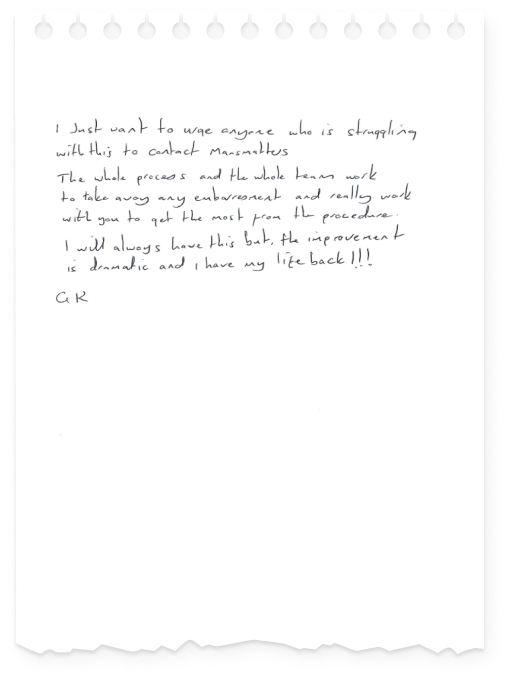 I Just want to urge anyone who is struggling
with this to contact Mansmatters
The whole process and the whole team work
to take away any embarresment and really work
with you to get the most from the procedure.
I will always have this but, the improvement
is dramatic and I have my life back !!!
G K